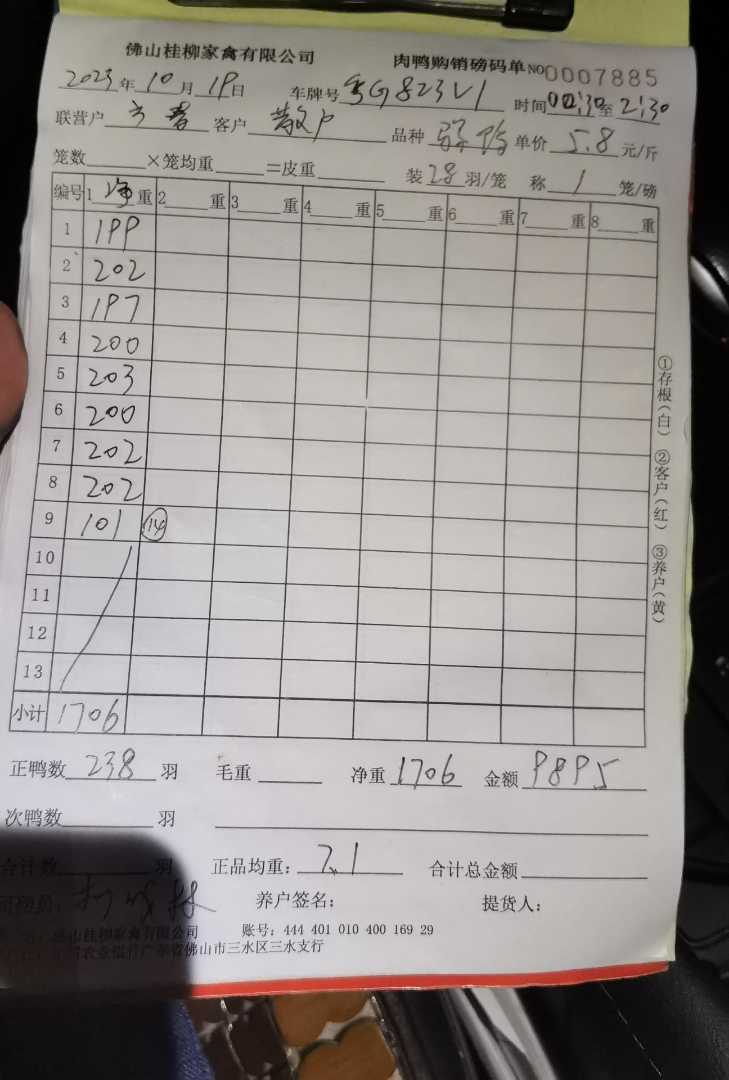 佛山桂柳家禽有限公司 肉鸭购销磅码单 NO0007885
2023年10月19日 车牌号粤G823V1 时间00:30至2:30
联营户 客户 散户 品种 单价 5.8 元/斤
笼数 ×笼均重 =皮重 装28羽/笼 称1笼/磅
编号 1净重 2 重 3 重 4 重 5 重 6 重 7 重 8 重
1 199
2 202
3 197
4 200
5 203
6 200
7 202
8 202
9 101 14
10
11
12
13
小计 1706
正鸭数 238 羽 毛重 净重 1706 金额 9895
次鸭数 羽
合计数 羽 正品均重: 7.1 合计总金额
养户签名: 提货人:
佛山桂柳家禽有限公司 账号: 444 401 010 400 169 29
农业银行广东省佛山市三水区三水支行
①存根(白) ②客户(红) ③养户(黄)